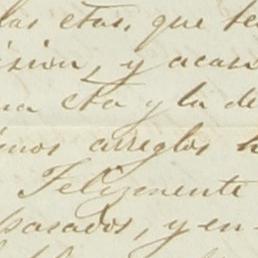 las etas, que te
ision, y acas
na eta y la de
imos arreglos h
Felizmente
pasados, y en-